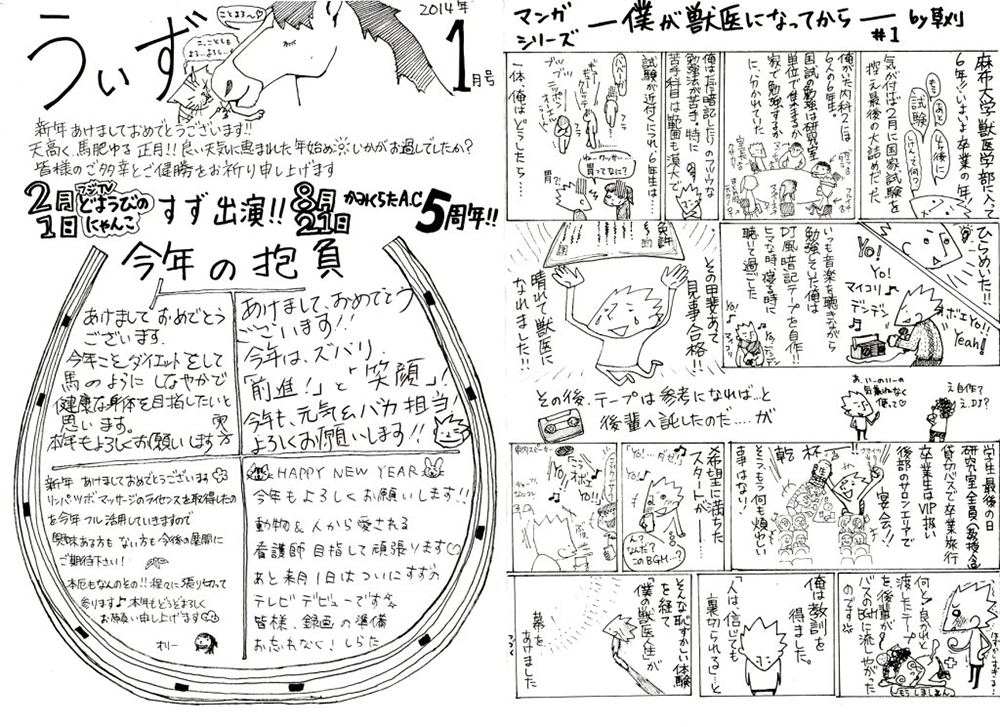 2014年
1月号
うぃず
ことよろ〜♡
新年あけましておめでとうございます!!
天高く、馬肥ゆる正月!!良い天気に恵まれた年始め☀いかがお過しでしたか?
皆様のご多幸とご健勝をお祈り申し上げます
2月1日 フジTV どようびのにゃんこ すず出演!! 8月21日 かみくらたA.C 5周年!!
今年の抱負
あけましておめでとう
ございます。
今年こそダイエットをして
馬のようにしなやかで
健康な身体を目指したいと
思います。
本年もよろしくお願いします
あけまして、おめでとう
ございます!!
今年は、ズバリ
「前進!」と「笑顔」!
今年も、元気&バカ担当!
よろしくお願いします!!
新年 あけましておめでとうございます
リンパツボマッサージのライセンスを取得したの
を今年フル活用していきますので
興味ある方も ない方も 今後の展開に
ご期待下さい!
本厄もなんのその!!程々に張り切って
参ります♪本年もどうぞよろしく
お願い申し上げます
オリー
HAPPY NEW YEAR
今年もよろしくお願いします!!
動物&人から愛される
看護師目指して頑張ります♡
あと来月1日はついにすずの
テレビデビューです☆
皆様、録画の準備
お忘れなく! しらた
マンガシリーズ ―僕が獣医になってから― #1 by草刈
麻布大学獣医学部に入って
6年!いよいよ卒業の年!
気が付けば2月に国家試験を
控え最後の大詰めだった
もう
あと
ちょっと後に
試験
俺がいた内科2には
6人の6年生。
国試の勉強は研究室
単位で集まるか
家で勉強するか
に、分かれていた
俺は丸暗記したりのフツウな
勉強法が苦手。特に
苦手科目は範囲も漠大で、
試験が近付くにつれ6年生は…
一体、俺はどうしたら…
ブツブツ
フラ
フラ
胃?!
胃ってなに?
ひらめいた!!
Yo!
Yo!
マイコリ♪
デンデン
オボエYo!!
Yeah!
いつも音楽を聴きながら
勉強していた俺は
DJ風暗記テープを自作!!
ヒマな時、寝る時に
聴いて過ごした
その甲斐あって、
見事合格!!
免許
晴れて獣医に
なれました!!
その後、テープは参考になれば…と
後輩へ託したのだ……が
あ、いーのいーの
気兼ねなく
使って♡
え、自作?
え、DJ?
学生最後の日
研究室全員(教授含)
貸切バスで卒業旅行
卒業生はVIP扱い
後部のサロンエリアで
宴会!!
乾杯〜
そう、もう何も煩わしい
事はない!
希望に満ちた
スタートが――
「Yo!…ダゼ!」
ん?
なんだ?
このBGM…?
車内スピーカー
Yo!
オボエ
Yo!!
何と!良かれと
渡したテープ
を後輩が
バスのBGMに流しやがった
のです
もうしましぇん
俺は教訓を
得ました。
「人は、信じても
裏切られる」…と
そんな恥ずかしい体験
を経て
「僕の獣医人生」が
幕をあけました
つづく